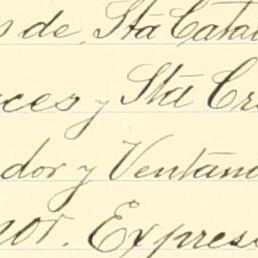 s de, Sta Catal
rces y Sta Cr
dor y Ventan
nor. Expres